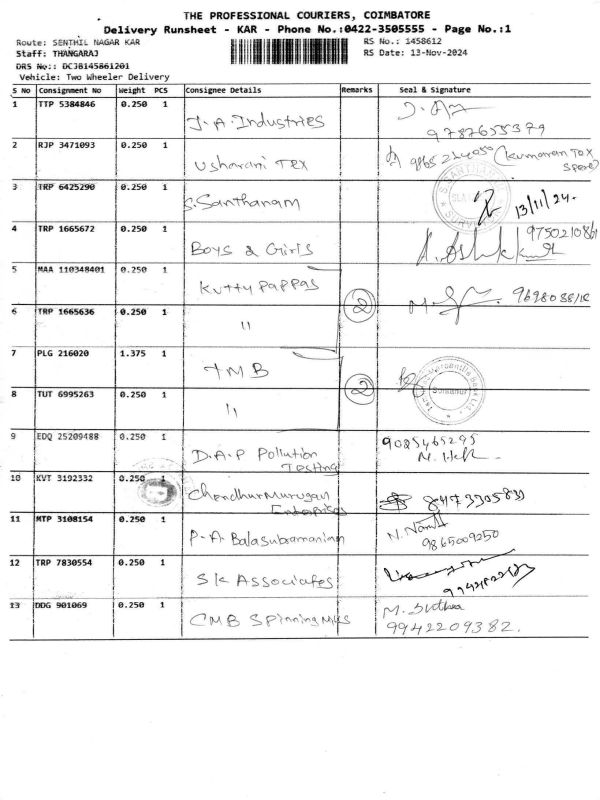 THE PROFESSIONAL COURIERS, COIMBATORE
Delivery Runsheet - KAR - Phone No.:0422-3505555 - Page No.:1
Route: SENTHIL NAGAR KAR
RS No.: 1458612
Staff: THANGARAJ
RS Date: 13-Nov-2024
DRS No.: DCJB145861201
Vehicle: Two Wheeler Delivery
S No Consignment No Weight PCS Consignee Details Remarks Seal & Signature
1 TTP 5384846 0.250 1 J.A. Industries
9787655379
2 RJP 3471093 0.250 1 Usharani Tex (Kumaran Tex
3 TRP 6425290 0.250 1 S. Santhanam 13/11/24.
4 TRP 1665672 0.250 1 Boys & Girls
5 MAA 110348401 0.250 1 Kutty Pappas
2
6 TRP 1665636 0.250 1 "
7 PLG 216020 1.375 1 TMB
2
8 TUT 6995263 0.250 1 "
9 EDQ 25209488 0.250 1 D.A.P Pollution Testing 9085465295
10 KVT 3192332 0.250 1 Chendhur Murugan Enterprises
11 MTP 3108154 0.250 1 P.A. Balasubramanian
9865009250
12 TRP 7830554 0.250 1 SK Associates
13 DDG 901069 0.250 1 CMB Spinning Mills
9942209382.